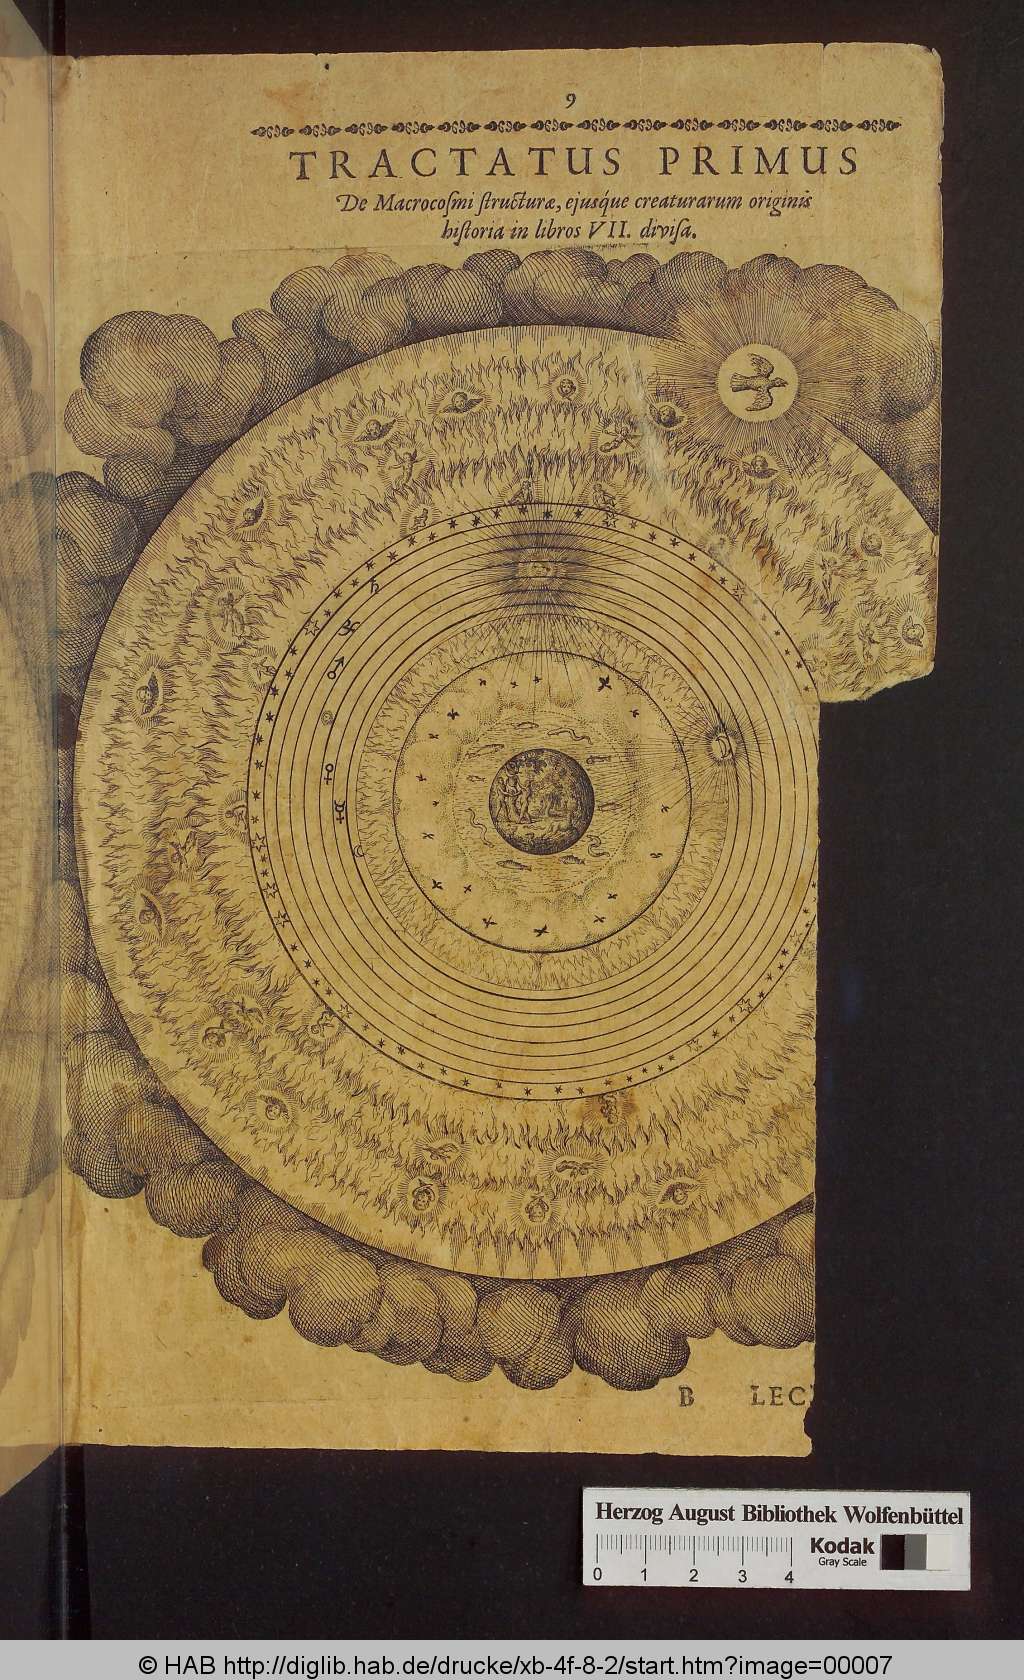 9
TRACTATUS PRIMUS
De Macrocoſmi ſtructuræ, ejusq́ue creaturarum originis
hiſtoria in libros VII. diviſa.
♄
♃
♂
☉
♀
☿
☾
B LEC
Herzog August Bibliothek Wolfenbüttel
Kodak
Gray Scale
0 1 2 3 4
© HAB http://diglib.hab.de/drucke/xb-4f-8-2/start.htm?image=00007